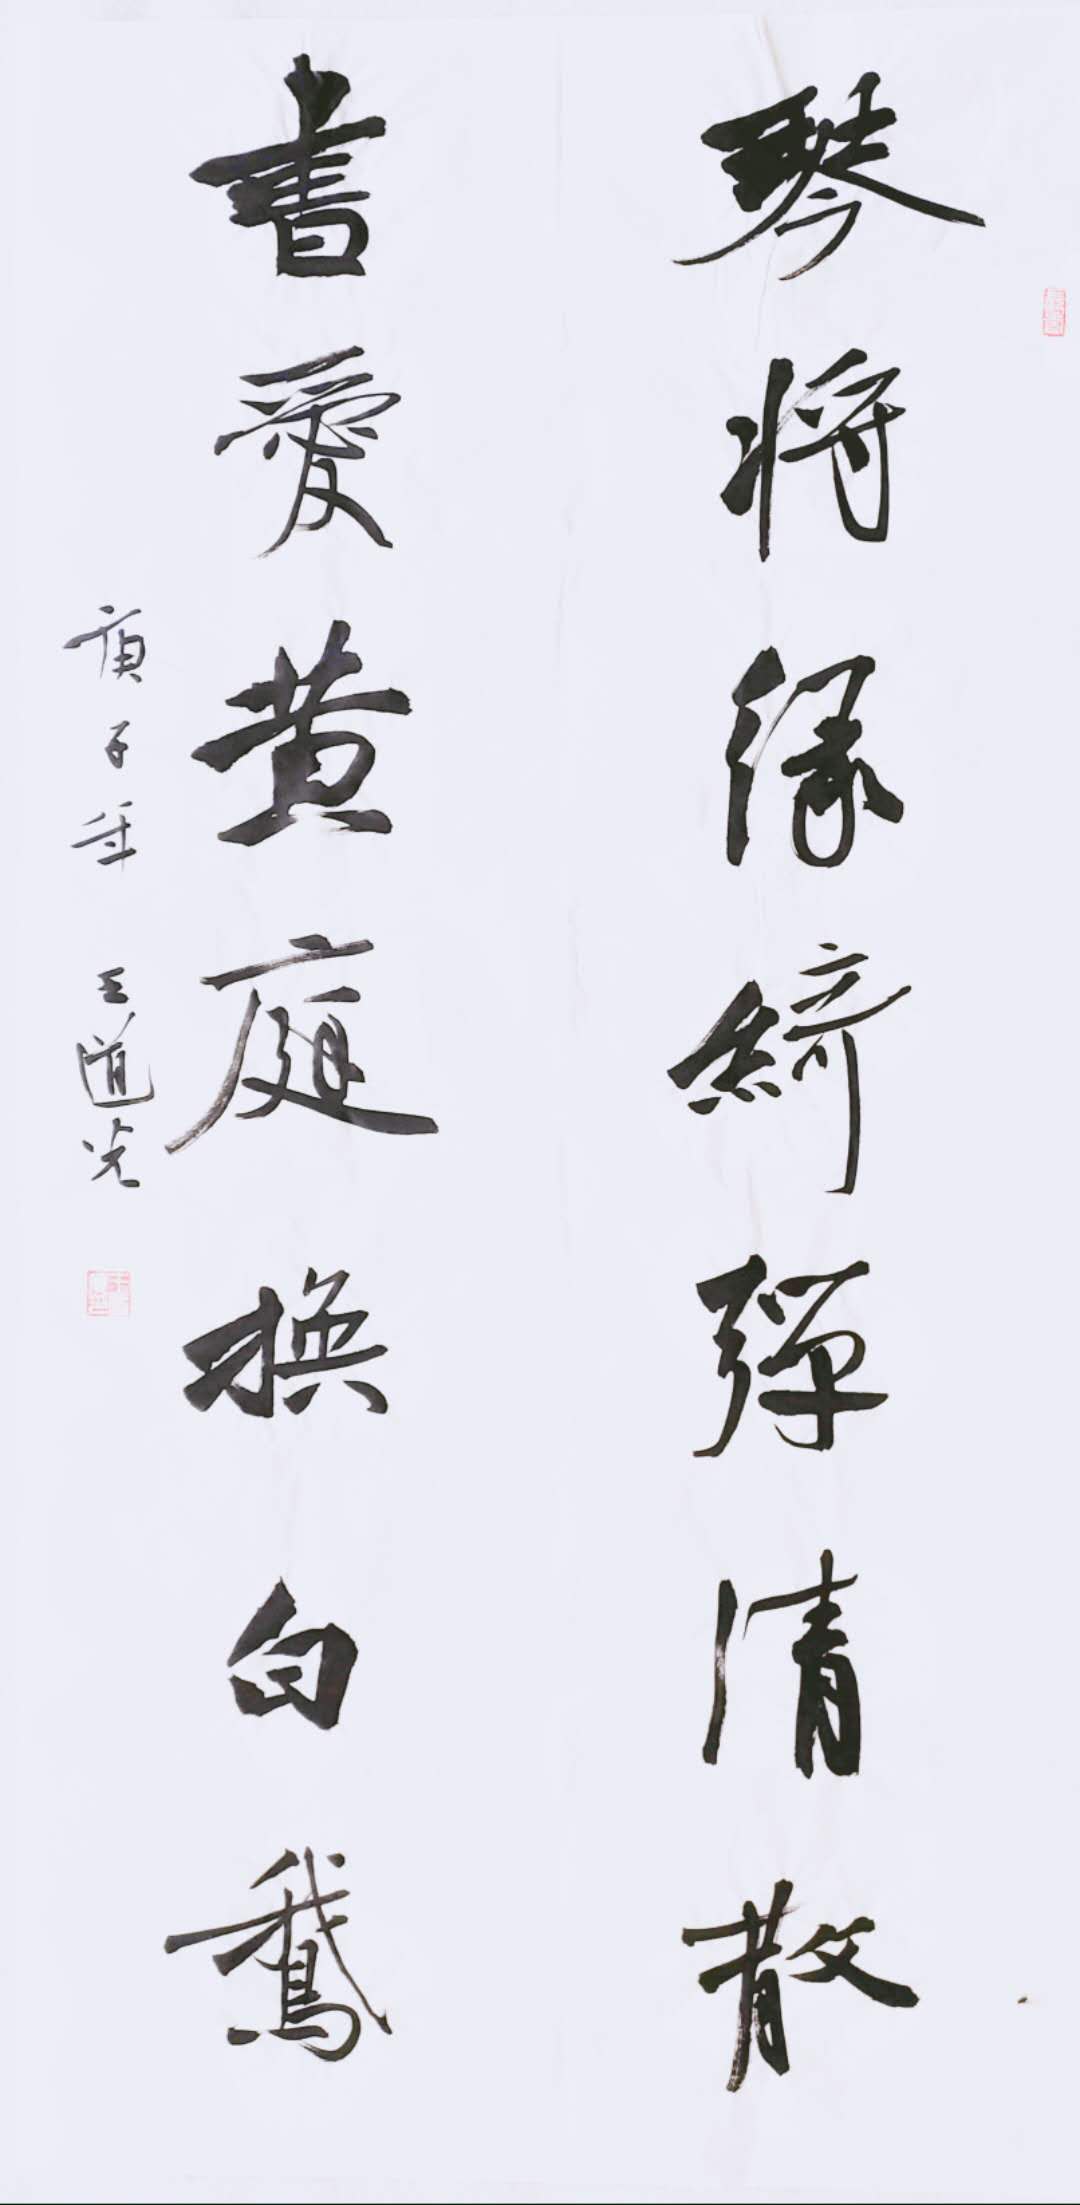 琴将绿綺彈清散
書愛黄庭換白鵞
庚子年 王道光